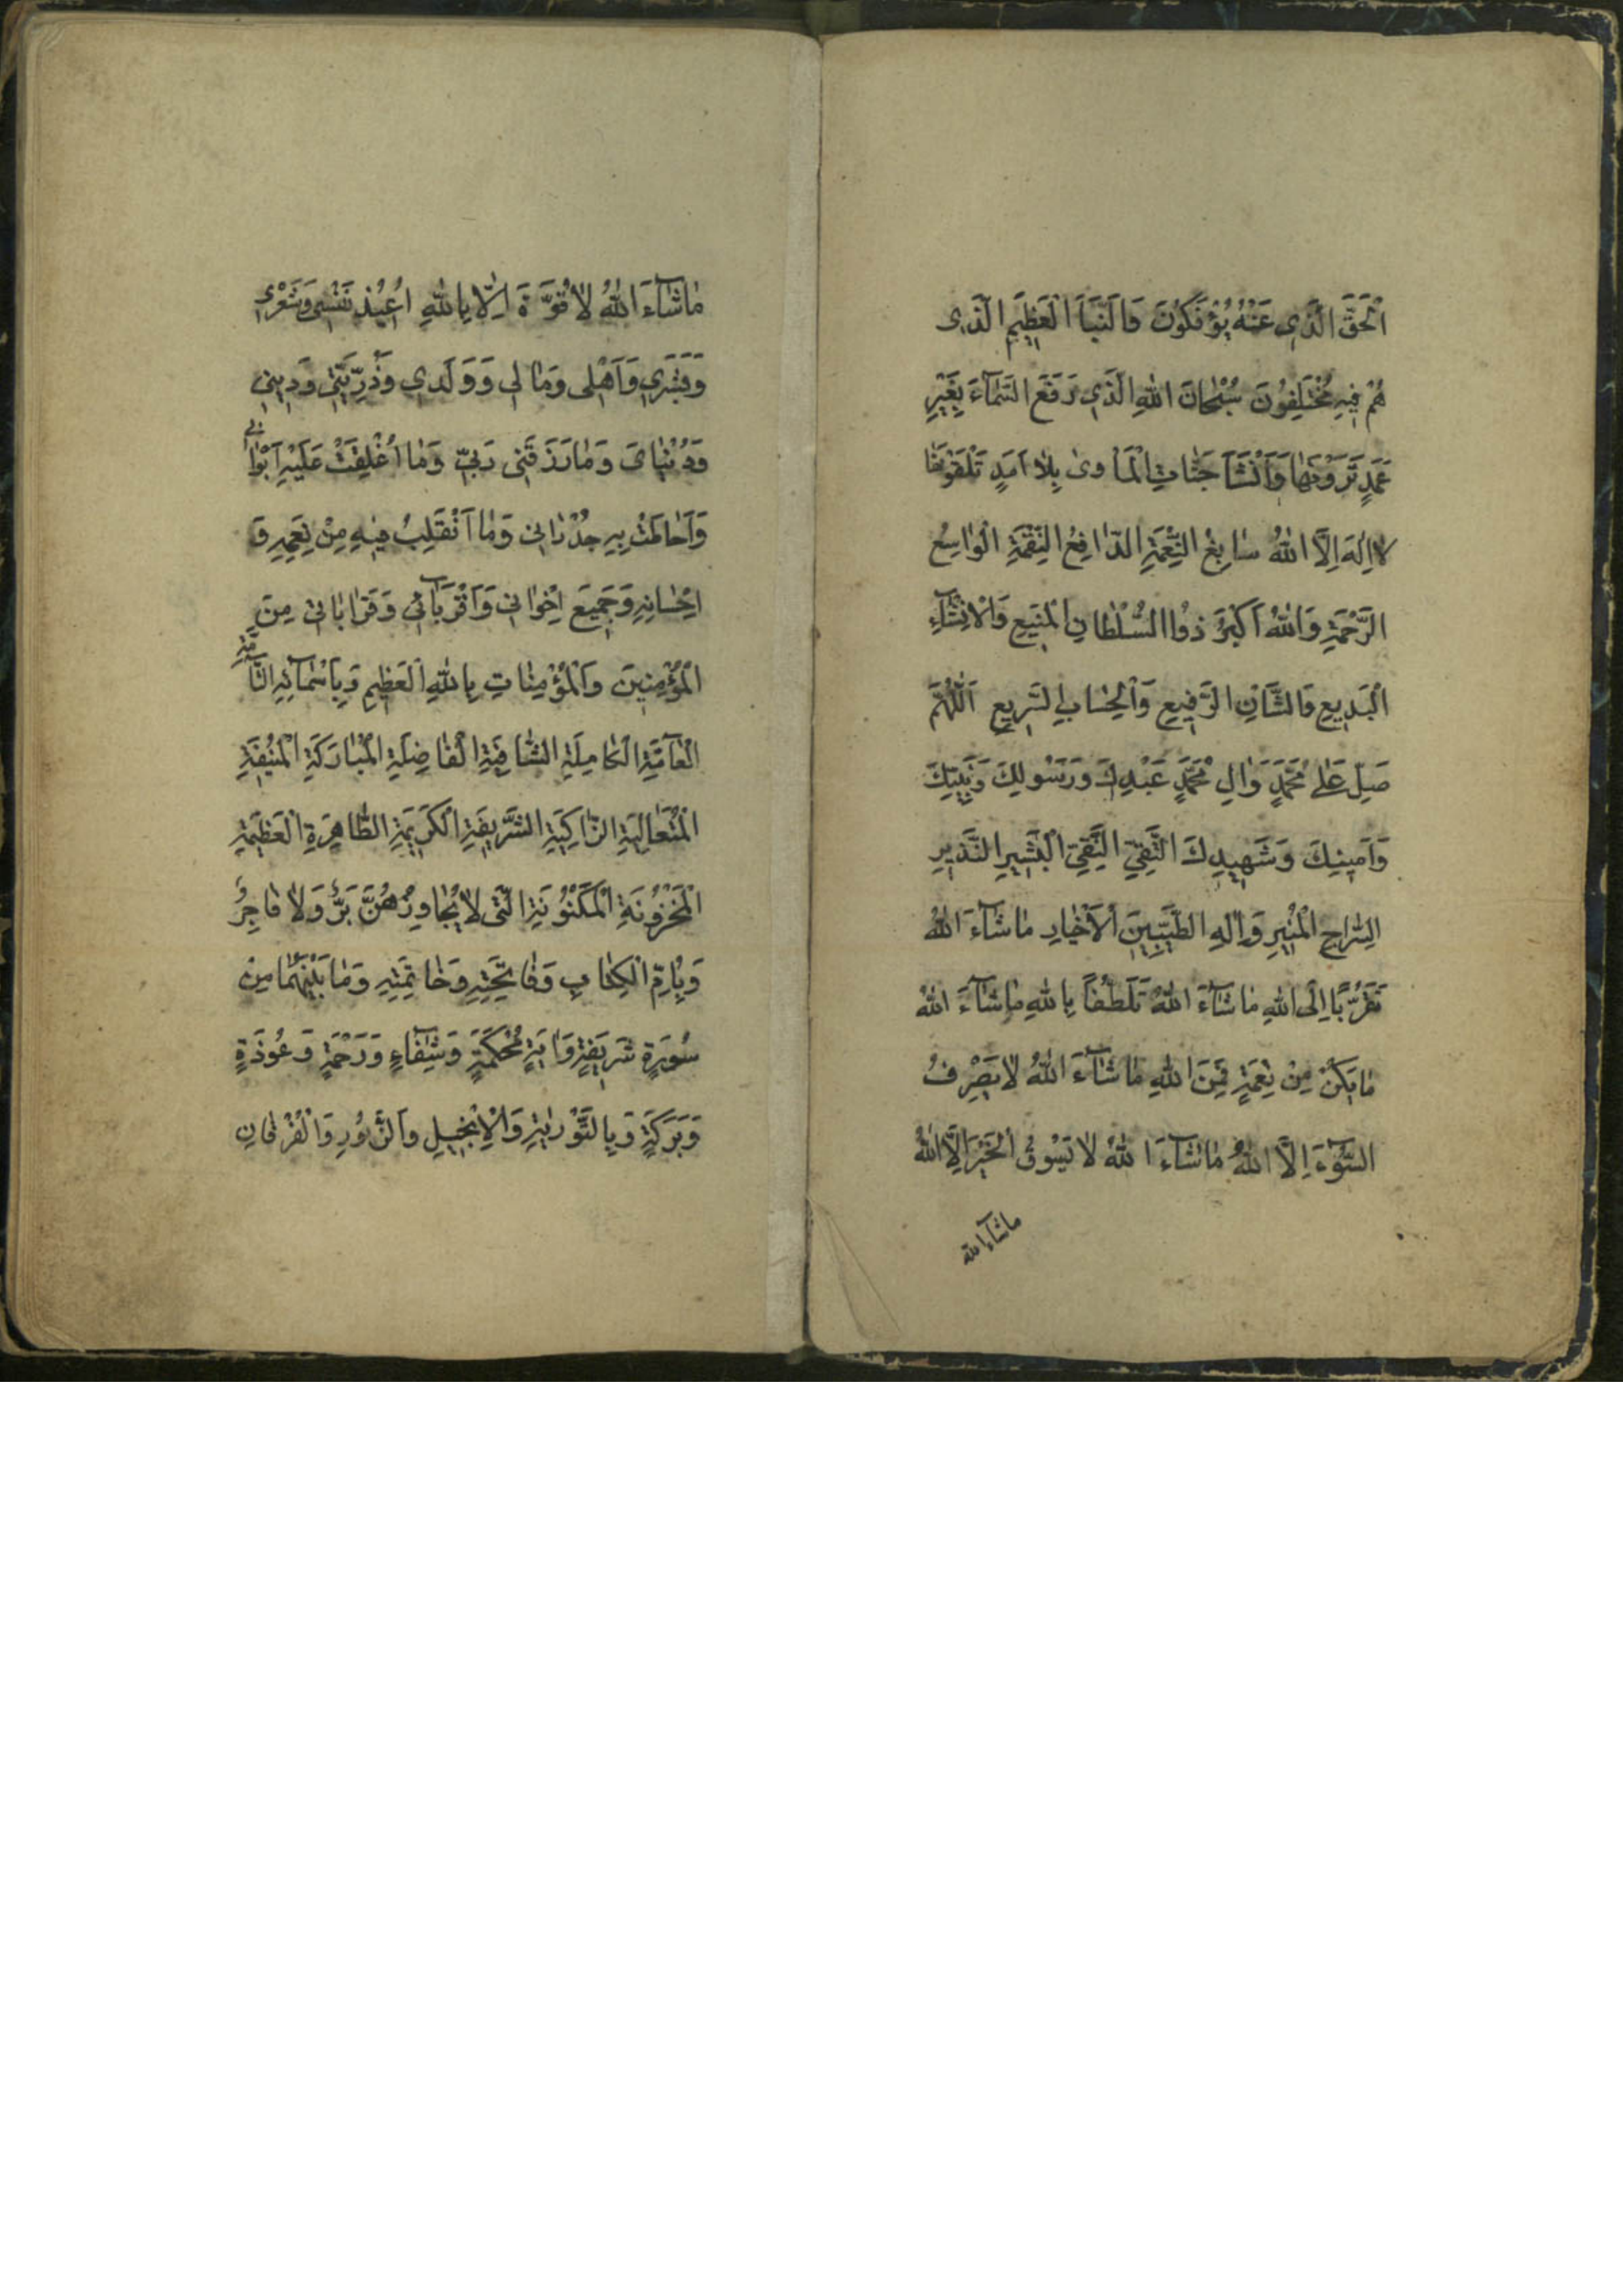 اَلْحَقَّ الَّذِي عَنْهُ يُؤْفَكُونَ وَالنَّبَأَ الْعَظِيمَ الَّذِي
هُمْ فِيهِ مُخْتَلِفُونَ سُبْحٰانَ اللهِ الَّذِي رَفَعَ السَّمٰآءَ بِغَيْرِ
عَمَدٍ تَرَوْنَهٰا وَاَنْشَأَ جَنّٰاتِ الْمَأْوىٰ بِلاٰ اَمَدٍ تَلْقَوْنَهٰا
لاٰ اِلٰهَ اِلَّا اللهُ سٰابِغُ النِّعْمَةِ الدّٰافِعُ النِّقْمَةِ الْوٰاسِعُ
الرَّحْمَةِ وَاللهُ اَكْبَرُ ذُوا السُّلْطٰانِ الْمَنِيعِ وَالْاِنْشٰآءِ
الْبَدِيعِ وَالشَّانِ الرَّفِيعِ وَالْحِسٰابِ السَّرِيعِ اَللّٰهُمَّ
صَلِّ عَلىٰ مُحَمَّدٍ وَاٰلِ مُحَمَّدٍ عَبْدِكَ وَرَسُولِكَ وَنَبِيِّكَ
وَاَمِينِكَ وَشَهِيدِكَ التَّقِيِّ النَّقِيِّ الْبَشِيرِ النَّذِيرِ
السِّرٰاجِ الْمُنِيرِ وَاٰلِهِ الطَّيِّبِينَ الْاَخْيٰارِ مٰا شٰآءَ اللهُ
تَقَرُّبًا اِلَى اللهِ مٰا شٰآءَ اللهُ تَلَطُّفًا بِاللهِ مٰا شٰآءَ اللهُ
مٰا يَكُنْ مِنْ نِعْمَةٍ فَمِنَ اللهِ مٰا شٰآءَ اللهُ لاٰ يَصْرِفُ
السُّوٓءَ اِلَّا اللهُ مٰا شٰآءَ اللهُ لاٰ يَسُوقُ الْخَيْرَ اِلَّا اللهُ
ماشآءالله
مٰا شٰآءَ اللهُ لاٰ قُوَّةَ اِلّٰا بِاللهِ اُعِيذُ نَفْسِي وَشَعْرِي
وَبَشَرِي وَاَهْلِي وَمٰالِي وَوَلَدِي وَذُرِّيَّتِي وَدِينِي
وَدُنْيٰايَ وَمٰا رَزَقَنِي رَبِّي وَمٰا اُغْلِقَتْ عَلَيْهِ اَبْوٰابِي
وَاَحٰاطَتْ بِهِ جُدْرٰانِي وَمٰا اَنْقَلِبُ فِيهِ مِنْ نِعَمِهِ وَ
اِحْسٰانِهِ وَجَمِيعَ اِخْوٰانِي وَاَقْرِبٰآئِي وَقَرٰابٰاتِي مِنَ
الْمُؤْمِنِينَ وَالْمُؤْمِنٰاتِ بِاللهِ الْعَظِيمِ وَبِاَسْمٰآئِهِ التّٰآمَّةِ
الْعٰآمَّةِ الْكٰامِلَةِ الشّٰافِيَةِ الْفٰاضِلَةِ الْمُبٰارَكَةِ الْمُنِيفَةِ
الْمُتَعٰالِيَةِ الزّٰاكِيَةِ الشَّرِيفَةِ الْكَرِيمَةِ الطّٰاهِرَةِ الْعَظِيمَةِ
الْمَخْزُونَةِ الْمَكْنُونَةِ الَّتِي لاٰ يُجٰاوِزُهُنَّ بَرٌّ وَلاٰ فٰاجِرٌ
وَبِاُمِّ الْكِتٰابِ وَفٰاتِحَتِهِ وَخٰاتِمَتِهِ وَمٰا بَيْنَهُمٰا مِنْ
سُورَةٍ شَرِيفَةٍ وَاٰيَةٍ مُحْكَمَةٍ وَشِفٰآءٍ وَرَحْمَةٍ وَعُوذَةٍ
وَبَرَكَةٍ وَبِالتَّوْرٰيةِ وَالْاِنْجِيلِ وَالزَّبُورِ وَالْفُرْقٰانِ